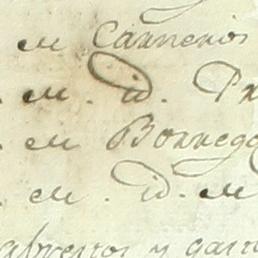 en Carneros
. en . id. Pr
. en Borrego
. en . id. en
abreros y garr